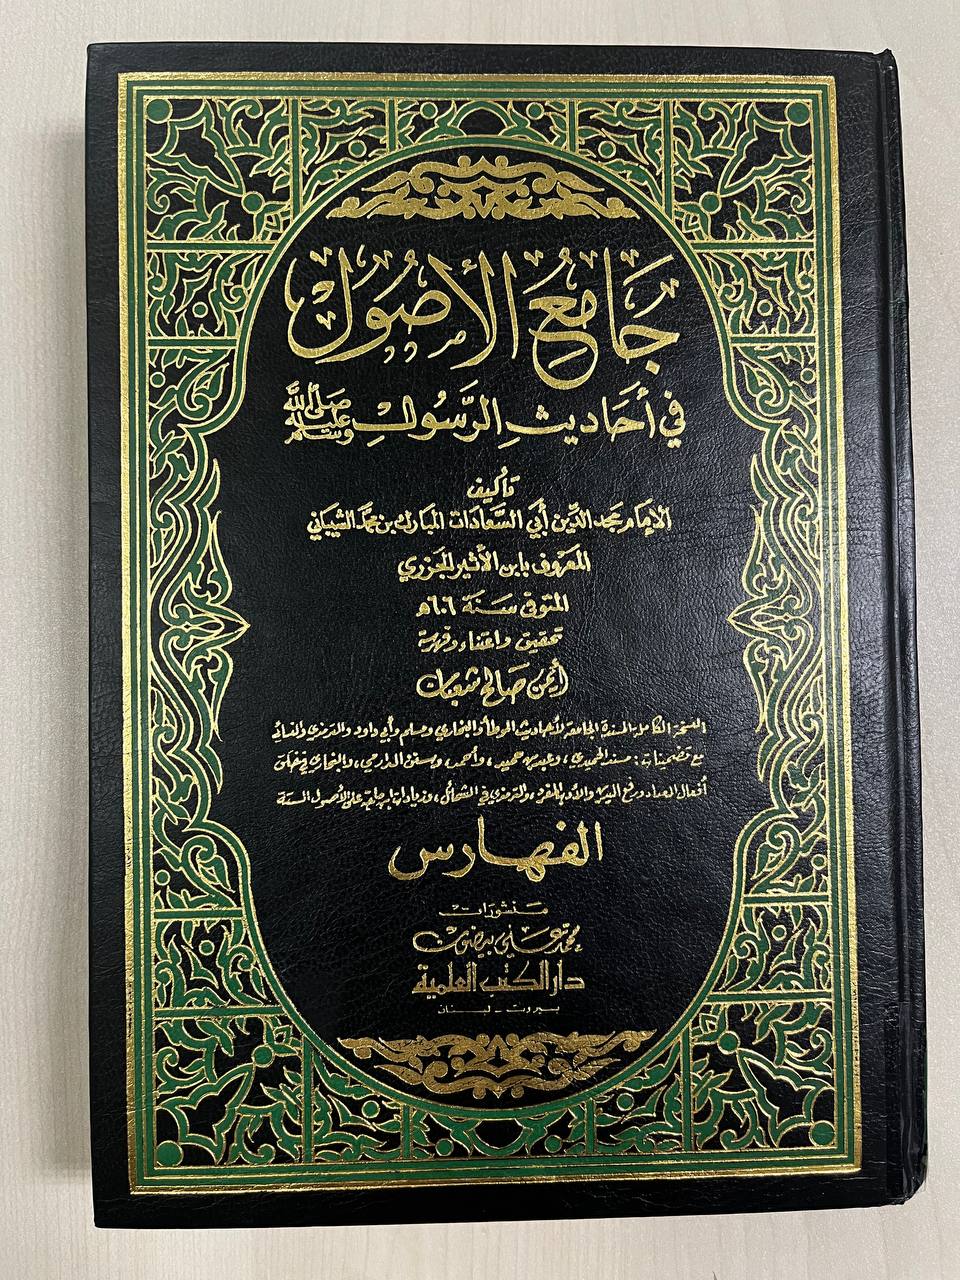 جَامِعُ الأُصُولِ
في أَحَادِيثِ الرَّسُولِ صَلَّى اللَّهُ عَلَيْهِ وَسَلَّم
تأليف
الإمام مجد الدين أبي السَّعادات المبارك بن محمَّد الشيباني
المعروف بابن الأثير الجزري
المتوفى سَنَة ٦٠٦هـ
تحقيق واعتناء وفهرسة
أيمن صالح شعبان
النسخة الكاملة المسندة الجامعة لأحاديث الموطأ والبخاري ومسلم وأبي داود والترمذي والنسائي
مع تضمينات: مسند الحميدي، وعبد بن حميد، وأحمد، وسنن الدارمي، والبخاري في خلق
أفعال العباد ورفع اليدين والأدب المفرد، والترمذي في الشمائل، وزيادات ابن ماجة على الأصول الستة
الفهارس
منشورات
محمد علي بيضون
دار الكتب العلمية
بيروت - لبنان